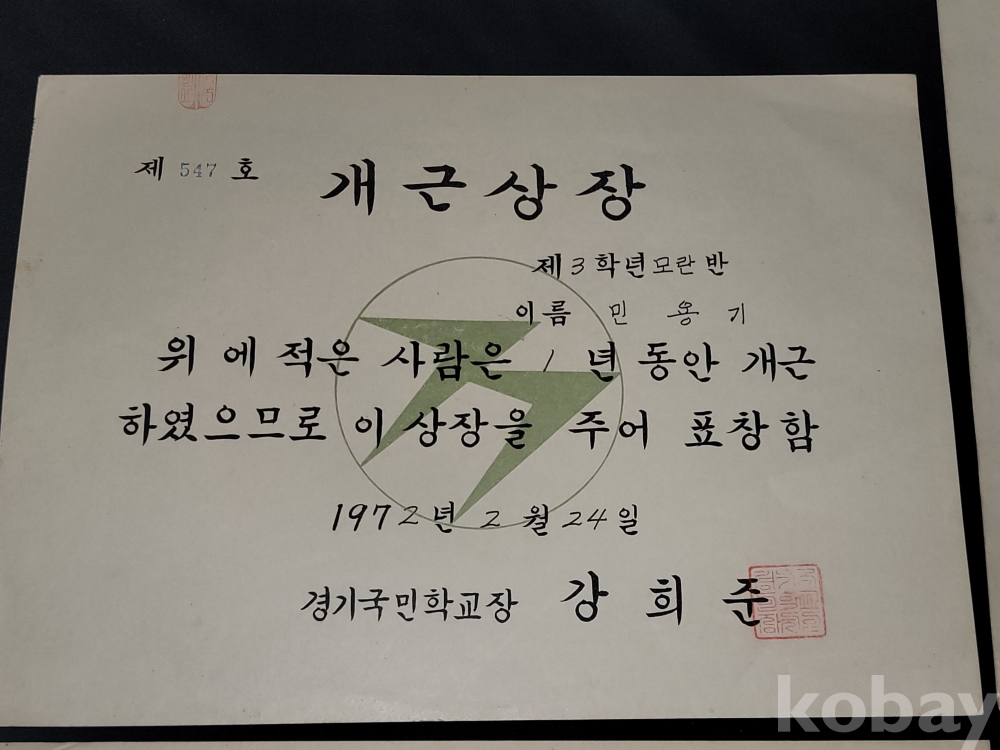 제 547 호
개근상장
제3학년모란반
이름 민 용 기
위 에 적은 사람은 1 년 동안 개근
하였으므로 이 상장을 주어 표창함
1972년 2 월 24일
경기국민학교장 강 희 준
kobay